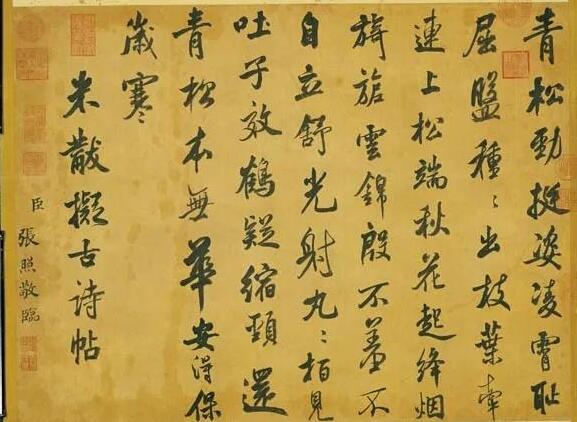 青松勁挺姿凌霄耻
屈盤種〻出枝葉牽
連上松端秋花起絳烟
旖旎雲錦殷不羞不
自立舒光射丸〻柏見
吐子效鶴疑縮頸還
青松本無華安得保
歲寒
米黻擬古詩帖
臣張照敬臨